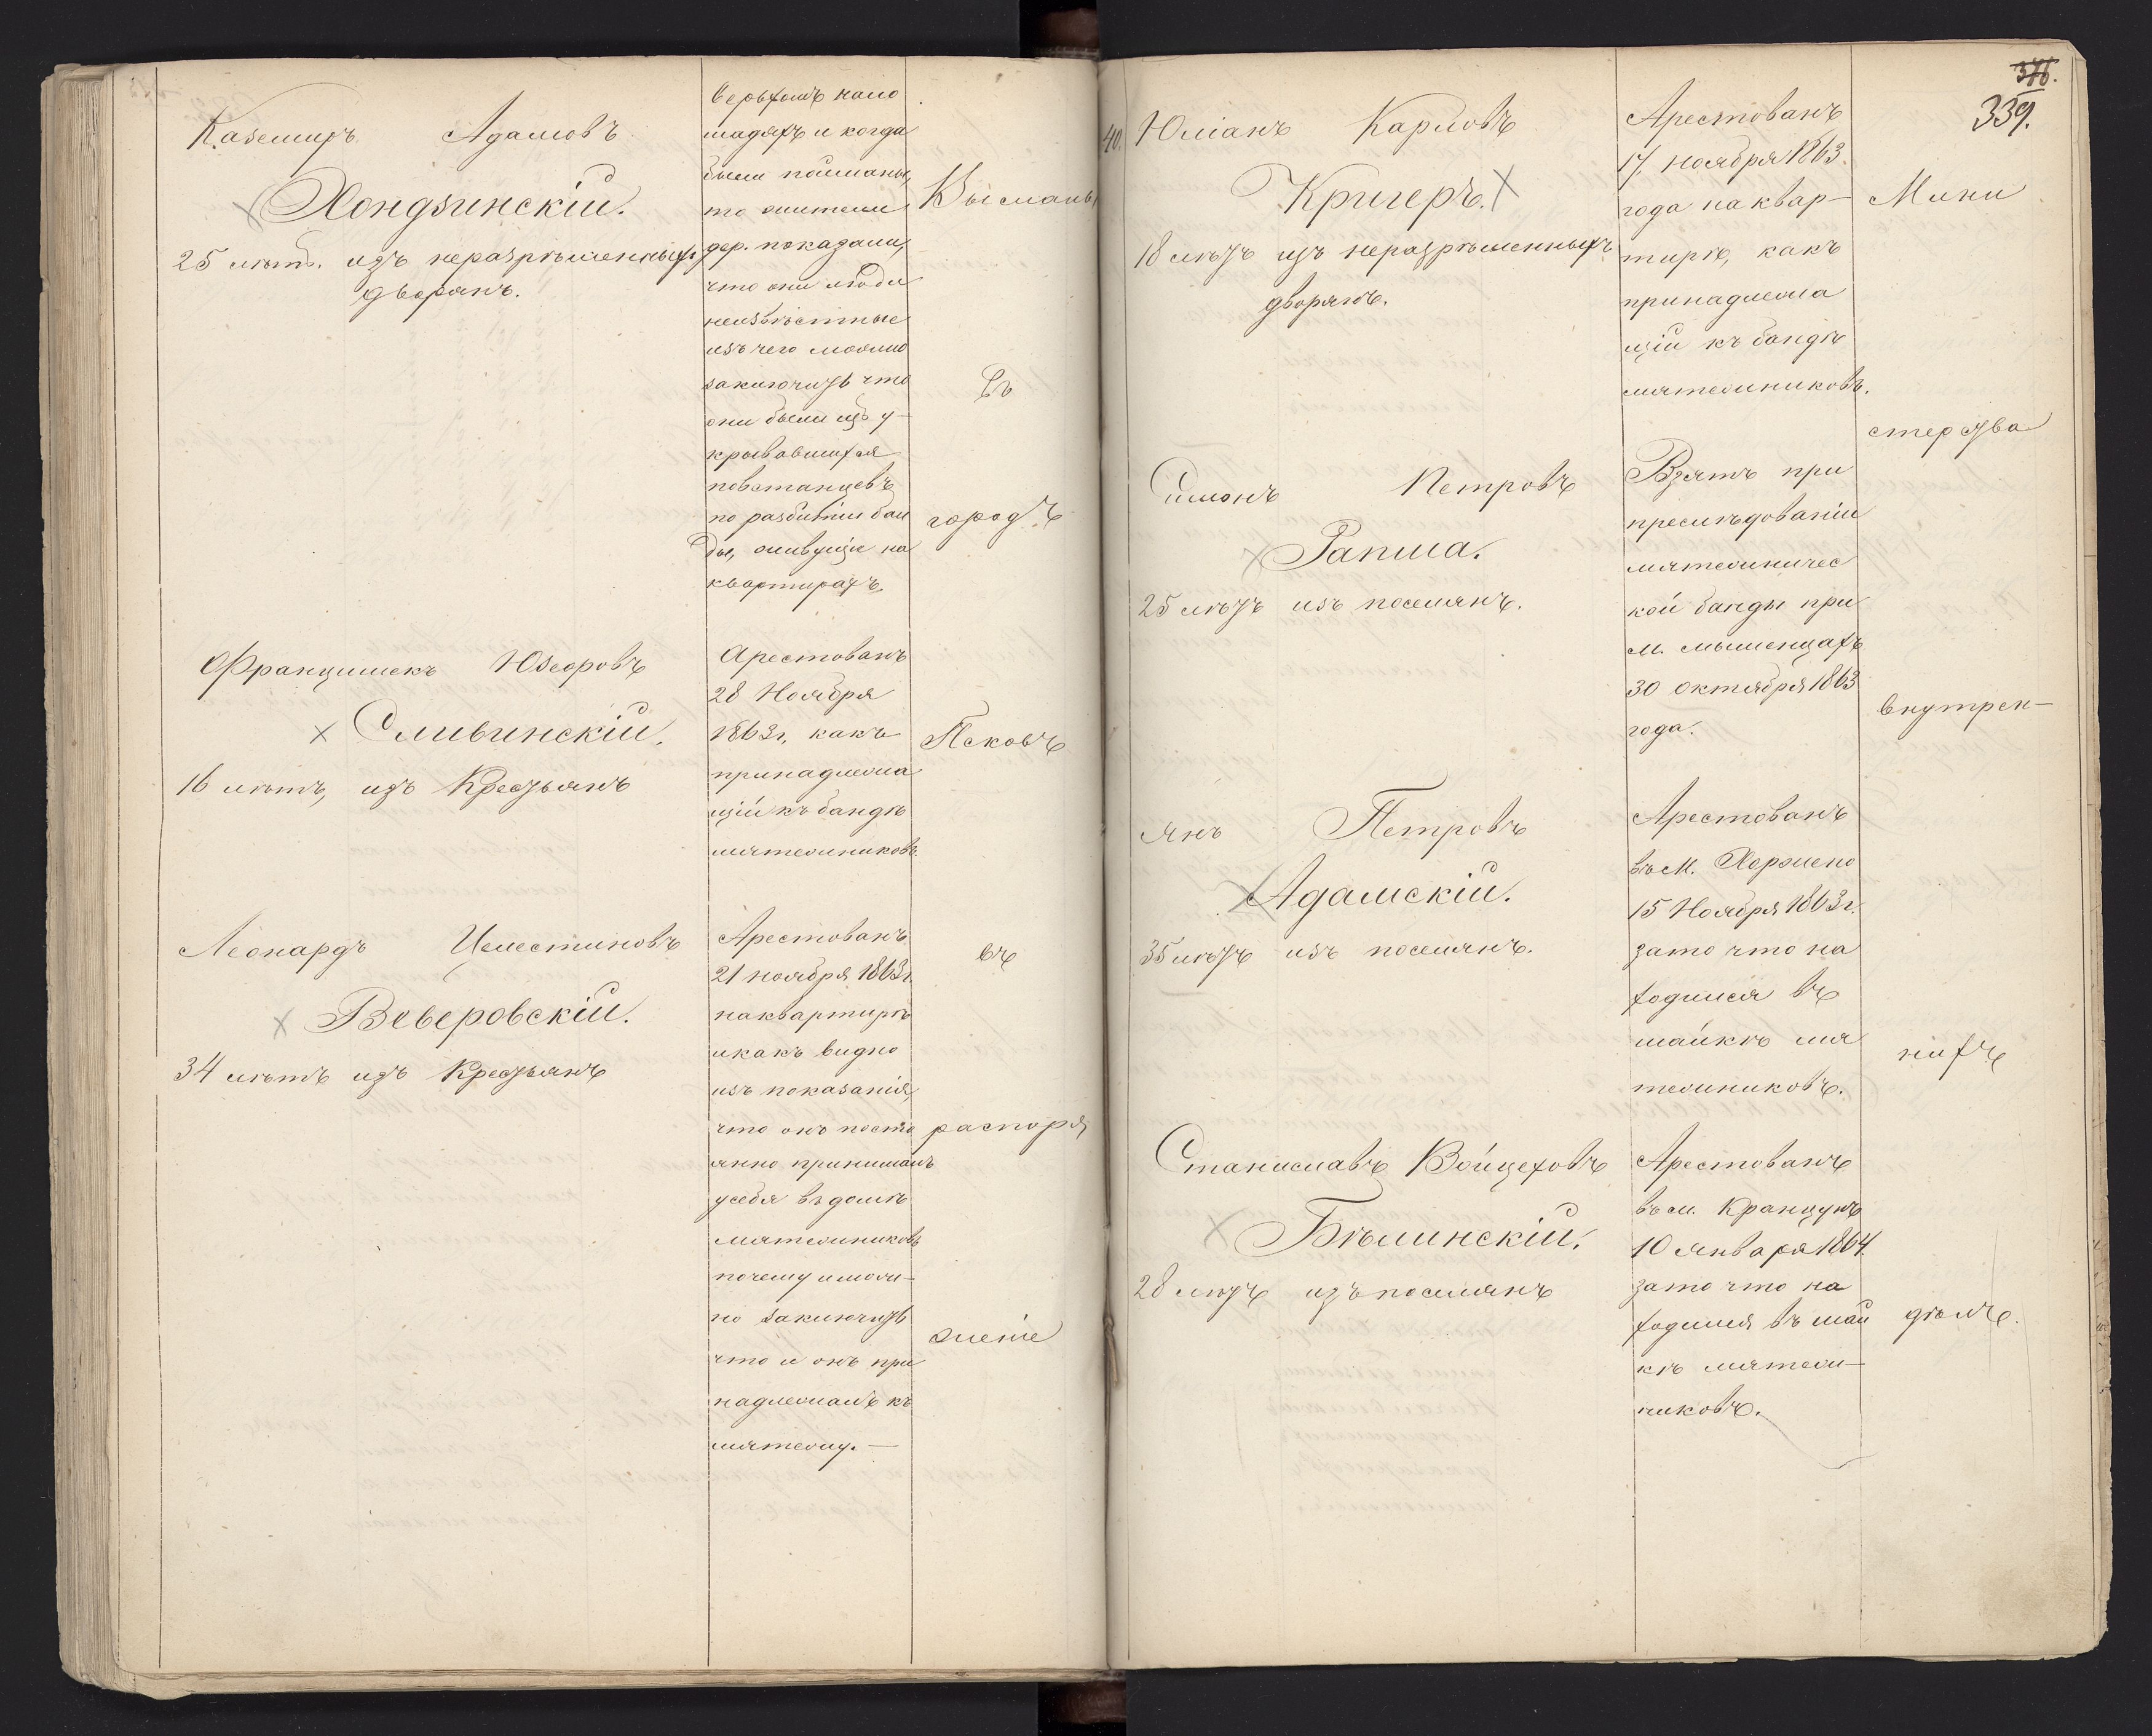 Каземиръ Адамовъ
Хондзинскій.
25 лѣтъ. изъ неразрѣшенныхъ
дворянъ.
верьхомъ на ло
шадяхъ и когда
были пойманы,
то жители
дер. показали,
что они люди
неизвѣстные
изъ чего можно
заключить что
они были изъ у-
крывавшихся
повстанцевъ
по разбитіи бан
ды, живущіе на
квартирахъ
Францишекъ Юзефовъ
Сливинскій.
16 лѣтъ, изъ Крестьянъ
Арестованъ
28 Ноября
1863 г, какъ
принадлежа
щій къ бандѣ
мятежниковъ.
Леонардъ Целестиновъ
Веверовскій.
34 лѣтъ изъ Крестьянъ
Арестованъ
21 ноября 1863 г.
на квартирѣ
и какъ видно
изъ показанія,
что онъ посто
янно принималъ
у себя въ домѣ
мятежниковъ
почему и мож-
но заключить
что и онъ при
надлежалъ къ
мятежу. —
Высланы
въ
городъ
Псковъ
въ
распоря
женіе
376.
339.
40.
Юліанъ Карловъ
Кригеръ.
18 лѣтъ изъ неразрѣшенныхъ
дворянъ.
Арестованъ
17 ноября 1863
года на квар-
тирѣ, какъ
принадлежа
щій къ бандѣ
мятежниковъ.
Симонъ Петровъ
Рапша.
25 лѣтъ изъ поселянъ.
Взятъ при
преслѣдованіи
мятежничес
кой банды при
м. Мышенцахъ
30 октября 1863
года.
Янъ Петровъ
Адамскій.
35 лѣтъ изъ поселянъ.
Арестованъ
въ м. Хоржено
15 Ноября 1863 г.
за то что на
ходился въ
шайкѣ мя
тежниковъ.
Станиславъ Войцеховъ
Бѣлинскій.
28 лѣтъ изъ поселянъ
Арестованъ
въ м. Кранцунъ
10 января 1864.
за то что на
ходился въ шай
кѣ мятеж-
никовъ.
Мини
стерства
внутрен-
нихъ
дѣлъ.